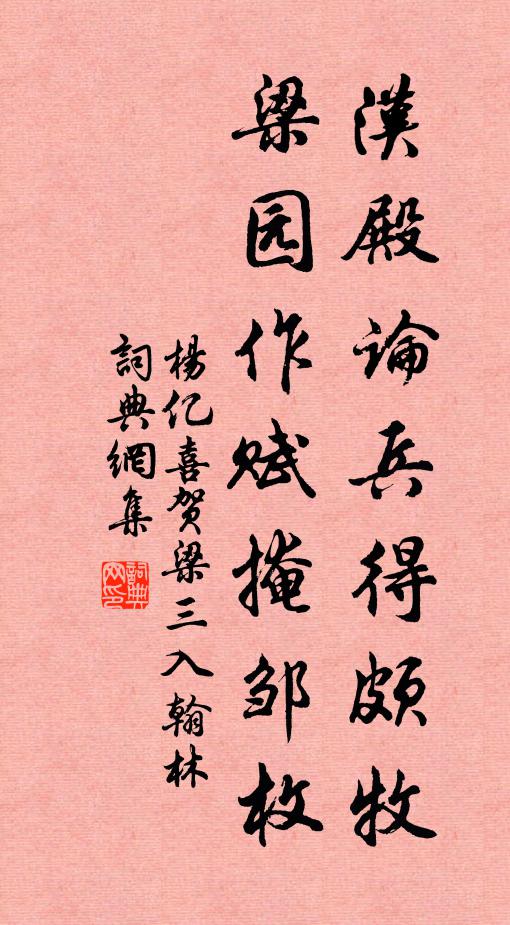 漢殿論兵得頗牧
梁园作赋掩邹枚
楊亿喜贺梁三入翰林
詞典網集
詞典网印